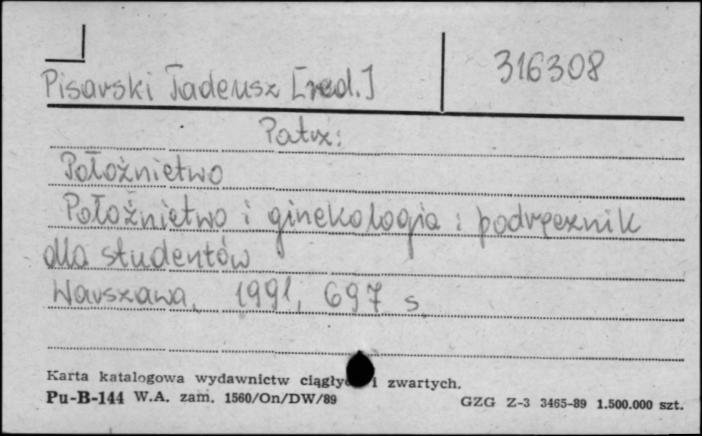 Pisarski Tadeusz [red.]
316308
Patrz:
Położnictwo
Położnictwo i ginekologia : podręcznik
dla studentów
Warszawa, 1991, 697 s.
Karta katalogowa wydawnictw ciągłych i zwartych.
Pu-B-144 W.A. zam. 1560/On/DW/89
GZG Z-3 3465-89 1.500.000 szt.